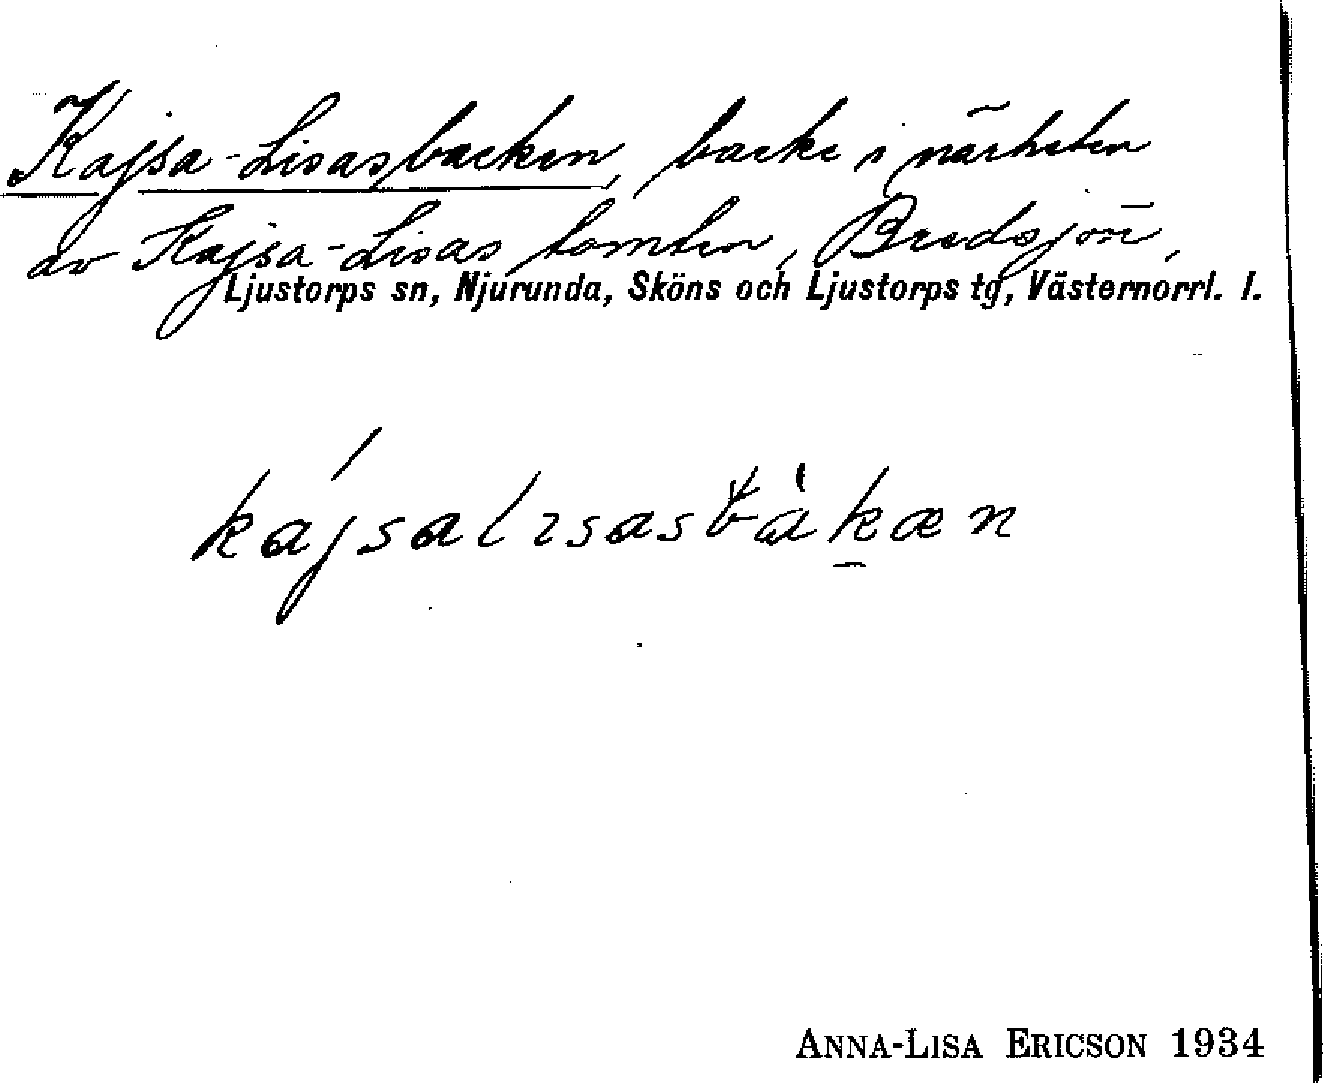 Kajsa-Lisasbacken, backe i närheten
av Kajsa-Lisas tomten, Bredsjön,
Ljustorps sn, Njurunda, Sköns och Ljustorps tg, Västernorrl. l.
kajsalisasbàkæn
ANNA-LISA ERICSON 1934